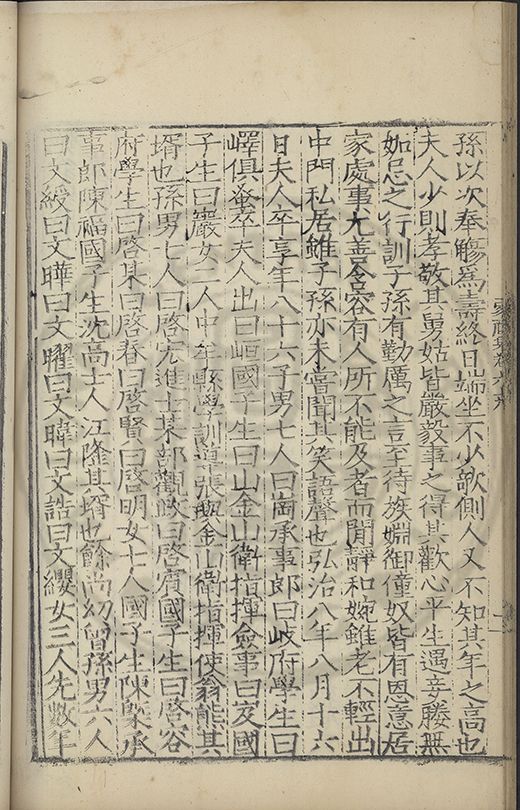 孫以次奉觴爲壽終日端坐不少欹側人又不知其年之高也
夫人少則孝敬其舅姑皆嚴毅事之得其歡心平生遇妾媵無
妬忌之行訓子孫有勤厲之言至待族婣御僮奴皆有恩意居
家處事尤善含容有人所不能及者而閒靜和婉雖老不輕出
中門私居雖子孫亦未嘗聞其笑語聲也弘治八年八月十六
日夫人卒享年八十六子男七人曰崗承事郎曰岐府學生曰
嶧俱蚤卒夫人出曰峘國子生曰山金山衛指揮僉事曰岌國
子生曰巖女二人中牟縣學訓導張 金山衛指揮使翁能其
壻也孫男七人曰啓宏進士某部觀政曰啓賓國子生曰啓容
府學生曰啓某曰啓春曰啓賢曰啓明女十人國子生陳 承
事郎陳福國子生沈高士人江隆其壻也餘尚幼曾孫男六人
曰文綬曰文曄曰文曜曰文暐曰文誥曰文纓女三人先數年